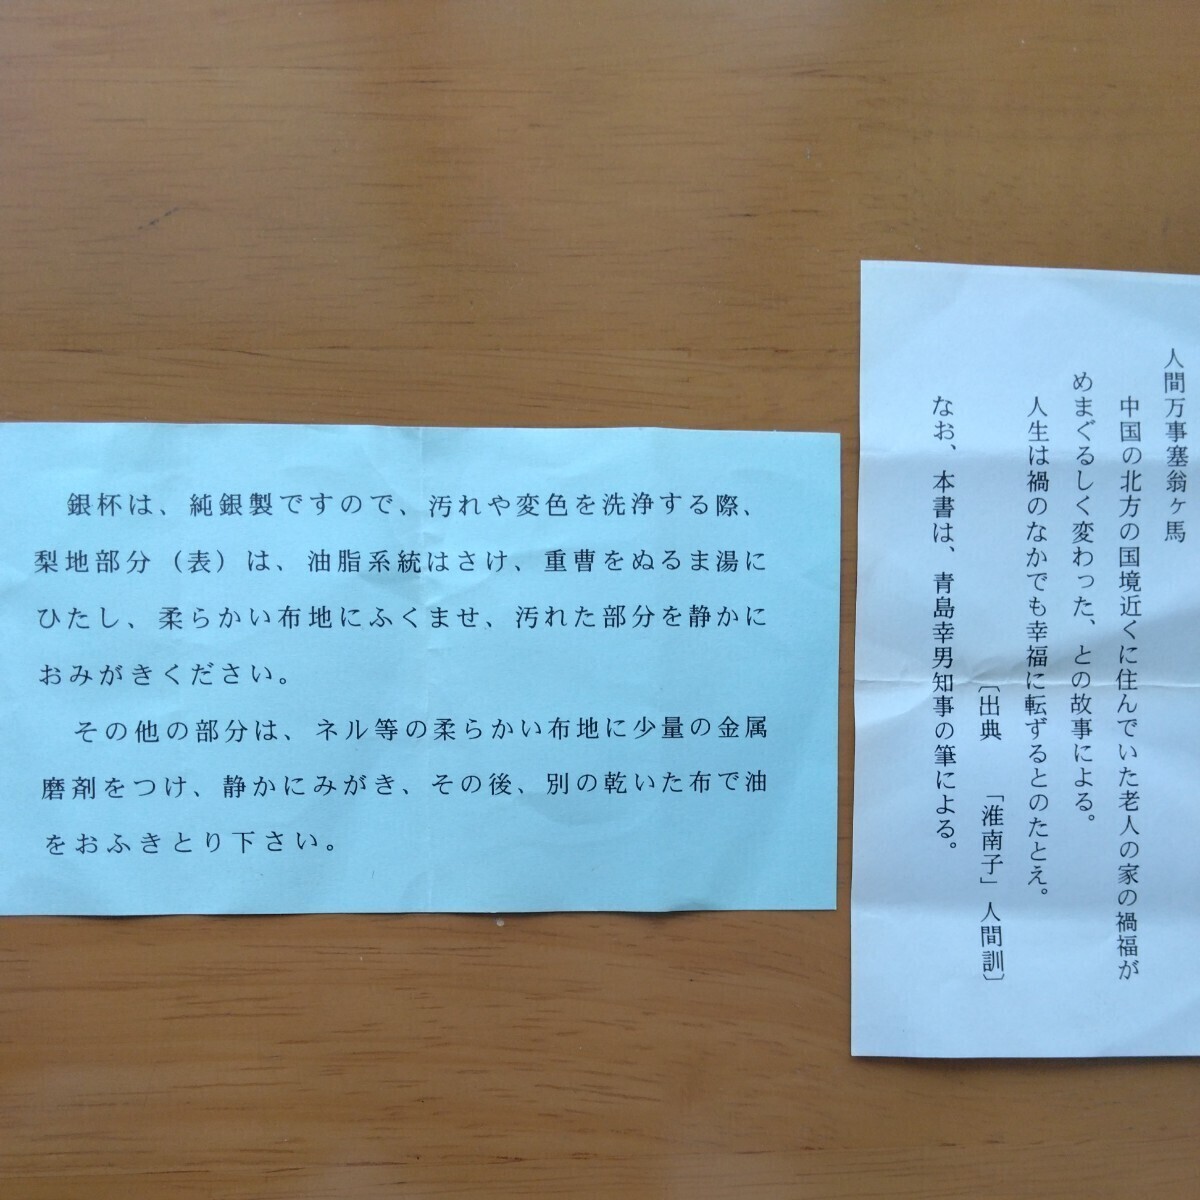 銀杯は、純銀製ですので、汚れや変色を洗浄する際、
梨地部分（表）は、油脂系統はさけ、重曹をぬるま湯に
ひたし、柔らかい布地にふくませ、汚れた部分を静かに
おみがきください。
その他の部分は、ネル等の柔らかい布地に少量の金属
磨剤をつけ、静かにみがき、その後、別の乾いた布で油
をおふきとり下さい。
人間万事塞翁ヶ馬
中国の北方の国境近くに住んでいた老人の家の禍福が
めまぐるしく変わった、との故事による。
人生は禍のなかでも幸福に転ずるとのたとえ。
〔出典　「淮南子」人間訓〕
なお、本書は、青島幸男知事の筆による。